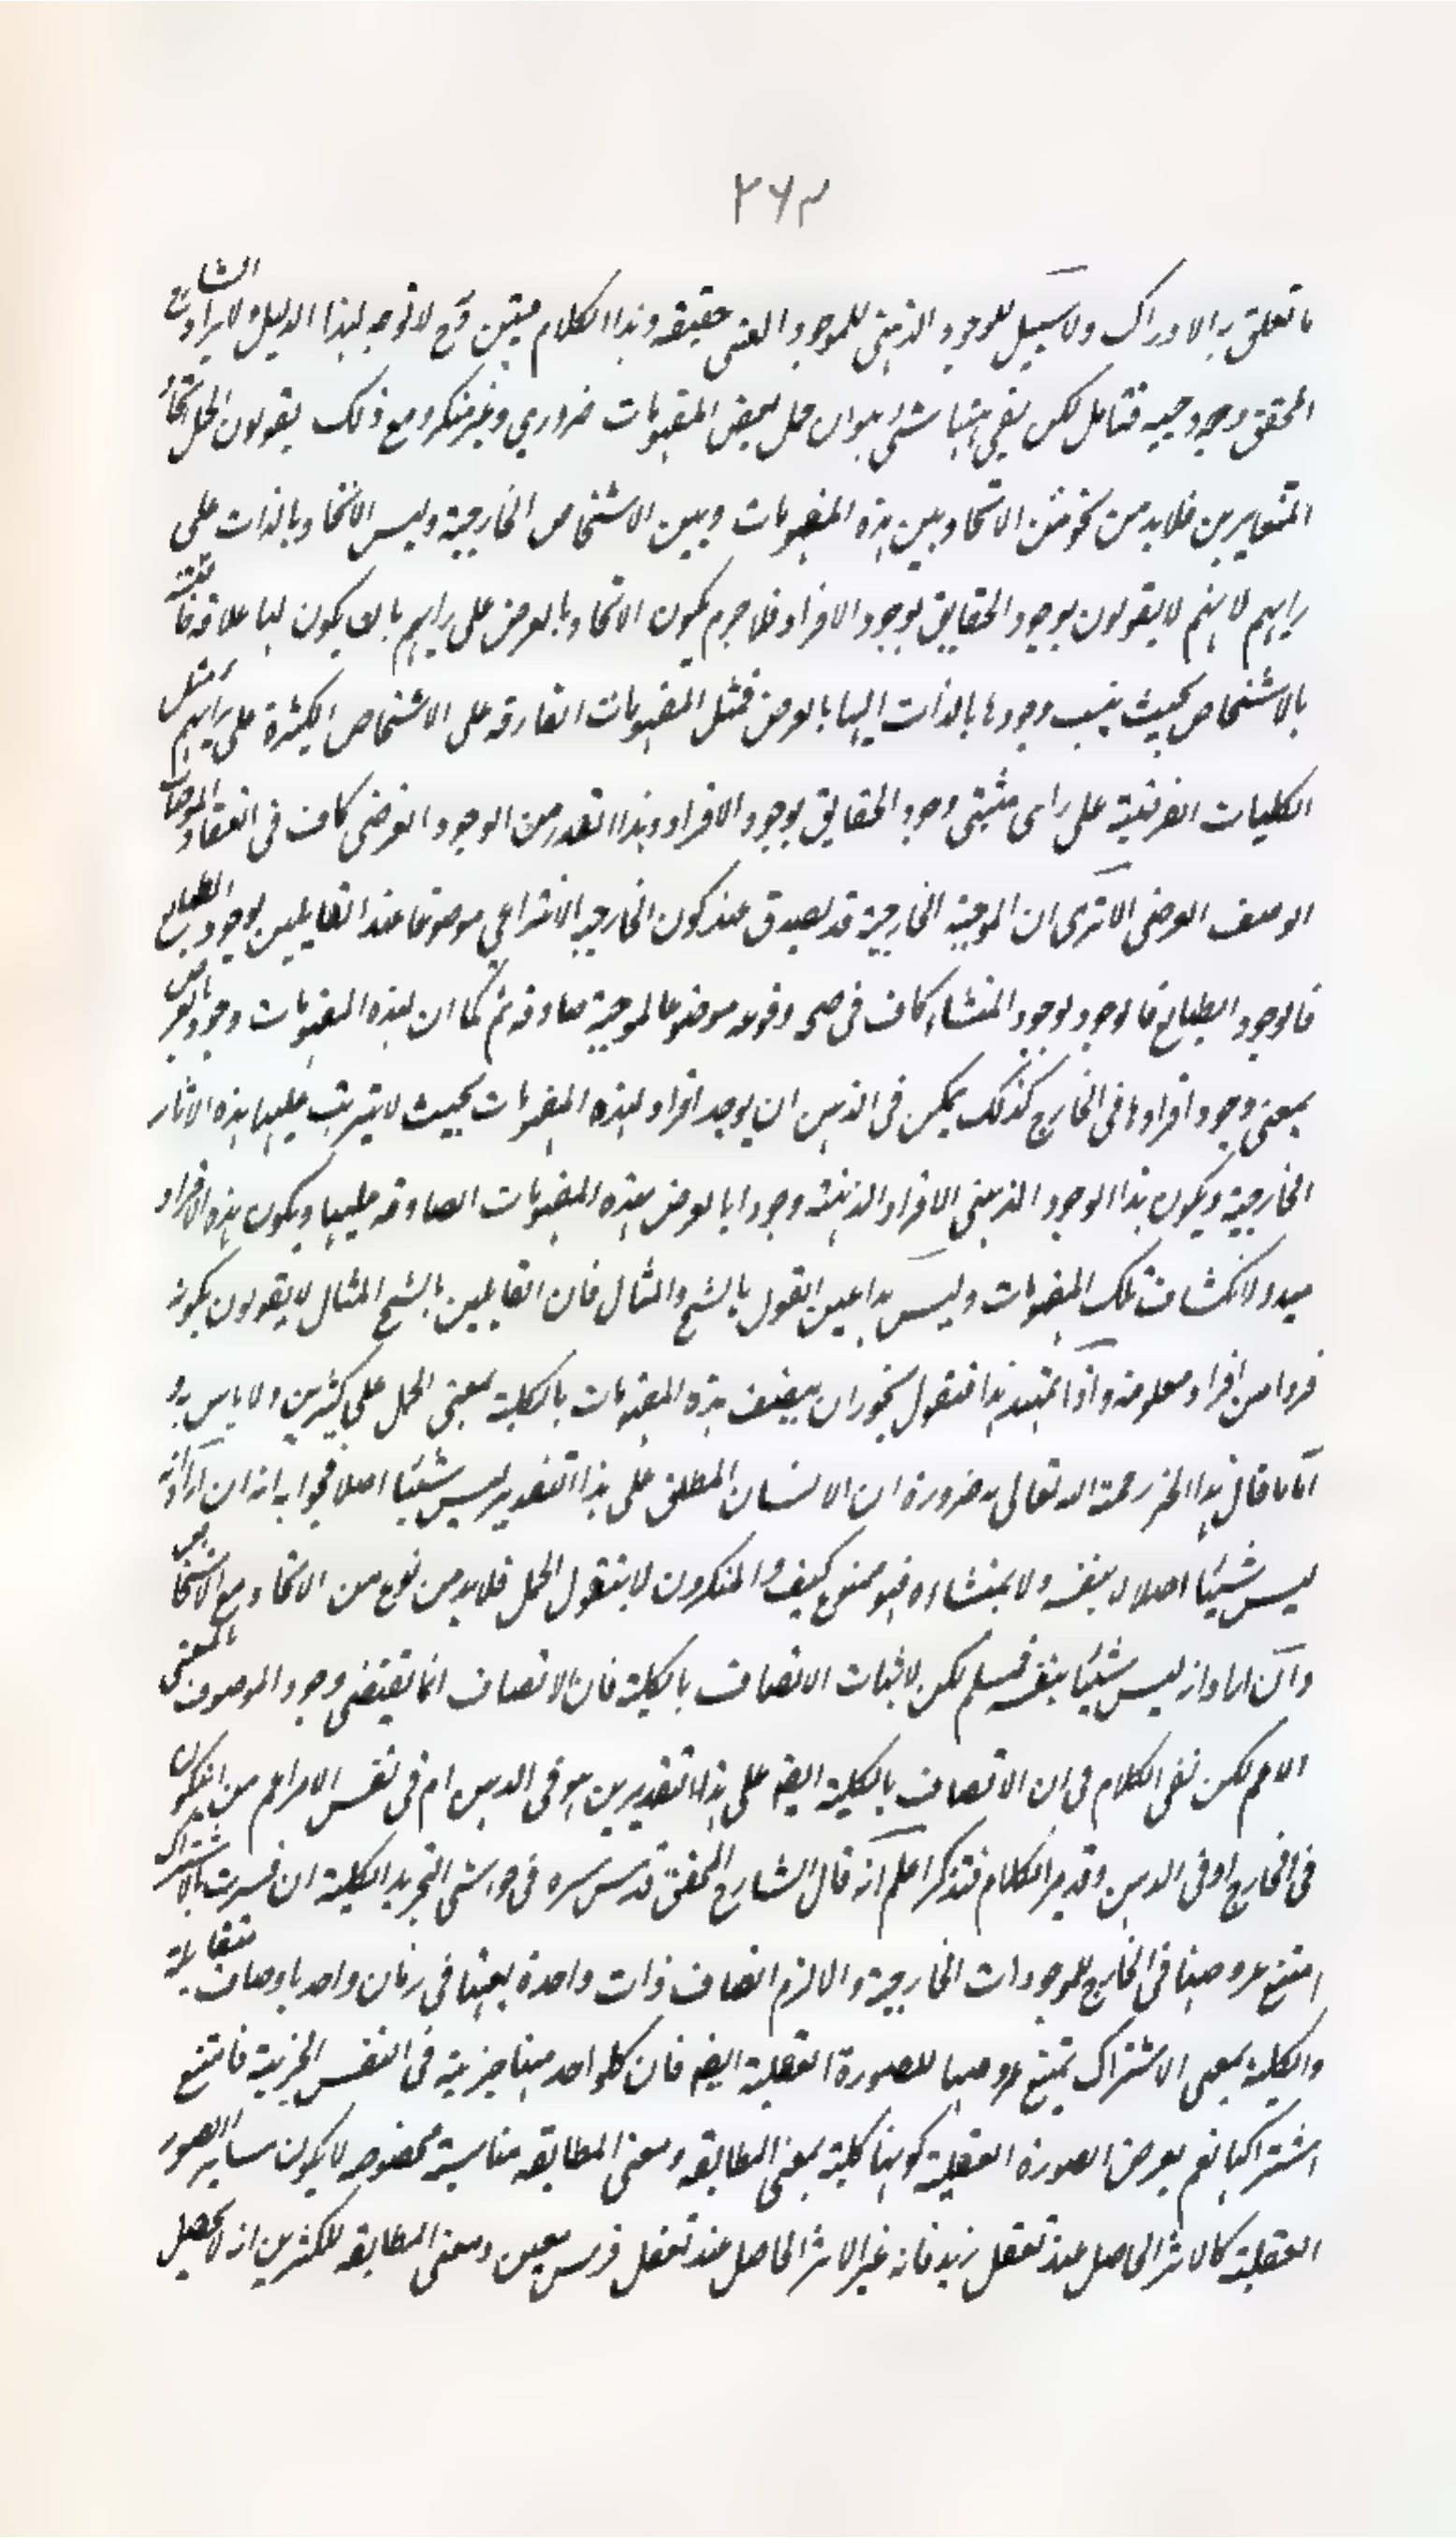 ٢٦٣
ما تعلق به الادراك ولا سبيل للوجود الذهني للموجود العيني حقيقة وهذا الكلام متين وح لا توجه لهذا الدليل ولايراد الشارح
المحقق وجه وجيه فتأمل لكن بقي ههنا شئ هو ان حمل بعض المفهومات ضروري وغير منكر ومع ذلك يقولون الحمل اتحاد
المتغايرين فلا بد من نحو من الاتحاد بين هذه المفهومات وبين الاشخاص الخارجية وليس الاتحاد بالذات على
رايهم لانهم لا يقولون بوجود الحقايق بوجود الافراد فلا جرم يكون الاتحاد بالعرض على رايهم بان يكون لها علاقة خاصة
بالاشخاص بحيث ينسب وجودها بالذات اليها بالعرض فمثل المفهومات الصادقة على الاشخاص الكثيرة على رايهم مثل
الكليات العرضية على راى مثبتي وجود الحقايق بوجود الافراد وهذا القدر من الوجود العرضي كاف في انعقاد الموجبات
الوصف العرضي الا ترى ان الموجبة الخارجية قد يصدق عند كون الخارجية الانتزاعي موضوعا عند القايلين بوجود الطبايع
فالوجود الطبايع فالوجود بوجود المنشاء كاف في صحة وقوعه موضوعا لموجبة صادقة ثم كما ان لهذه المفهومات وجود بالعرض
بمعنى وجود افرادها في الخارج كذلك يمكن في الذهن ان يوجد افراد لهذه المفهومات بحيث لا يترتب عليها هذه الاثار
الخارجية ويكون هذا الوجود الذهني الافراد الذهنية وجودا بالعرض لهذه المفهومات الصادقة عليها ويكون هذه الافراد
مبدء لانكشاف تلك المفهومات وليس هذا عين القول بالشبح والمثال فان القايلين بالشبح المثال لا يقولون بكونه
فردا من افراد معلومة واذا تمهد هذا فنقول يجوز ان يتصف هذه المفهومات بالكلية بمعنى الحمل على كثيرين ولا باس به و
اما ما قال هذا الحبر رحمة الله تعالى به ضرورة ان الانسان المطلق على هذا التقدير ليس شيئا اصلا فجوابه انه ان اراد انه
ليس شيئا اصلا لا بنفسه ولا بمنشاءه فهو ممنوع كيف والمنكرون لا ينتقول الحمل فلا بد من نوع من الاتحاد مع الاشخاص
وان اراد انه ليس شيئا بنفسه فمسلم لكن لاثبات الاتصاف بالكلية فان الاتصاف انما يقتضي وجود الموصوف بالمعنى
الاعم لكن بقي الكلام في ان الاتصاف بالكلية ايضا على هذا التقديرين هو في الذهن ام في نفس الامر اعم من ان يكون
في الخارج او في الذهن وقد مر الكلام فتذكر اعلم انه قال الشارح المحقق قدس سره في حواشي التجريد الكلية ان فسرت بالاشتراك
امتنع عروضها في الخارج للموجودات الخارجية والا لزم اتصاف ذات واحدة بعينها في زمان واحد باوصاف متقابلة
والكلية بمعنى الاشتراك يمتنع عروضها للصورة العقلية ايضا فان كلواحد منها جزئية في النفس الجزئية فامتنع
اشتراكها نعم يعرض الصورة العقلية كونها كلية بمعنى المطابقة ومعنى المطابقة مناسبة مخصوصة لا يكون ساير الصور
العقلية كالاثر الحاصل عند تعقل زيد فانه غير الاثر الحاصل عند تعقل فرس معين ومعنى المطابقة للكثيرين انه لا يحصل